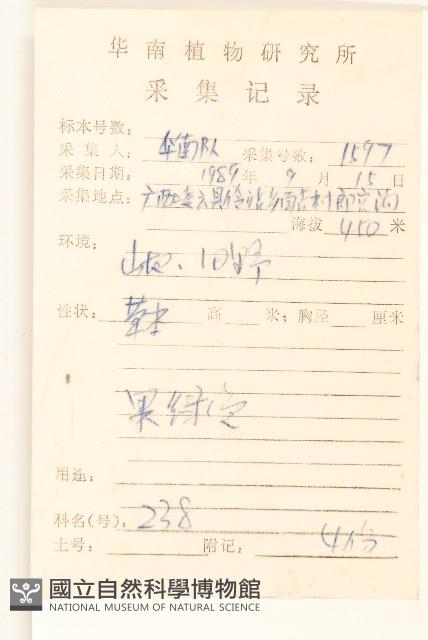 华南植物研究所
采集记录
标本号数:
采集人: 华南队 采集号数: 1597
采集日期: 1989年9月15日
采集地点: 广西凌云县
海拔 450 米
环境:
山坡、田野
性状: 草本 高 米; 胸径 厘米
果绿色
用途:
科名(号): 238
土号: 附记: 4份
國立自然科學博物館
NATIONAL MUSEUM OF NATURAL SCIENCE